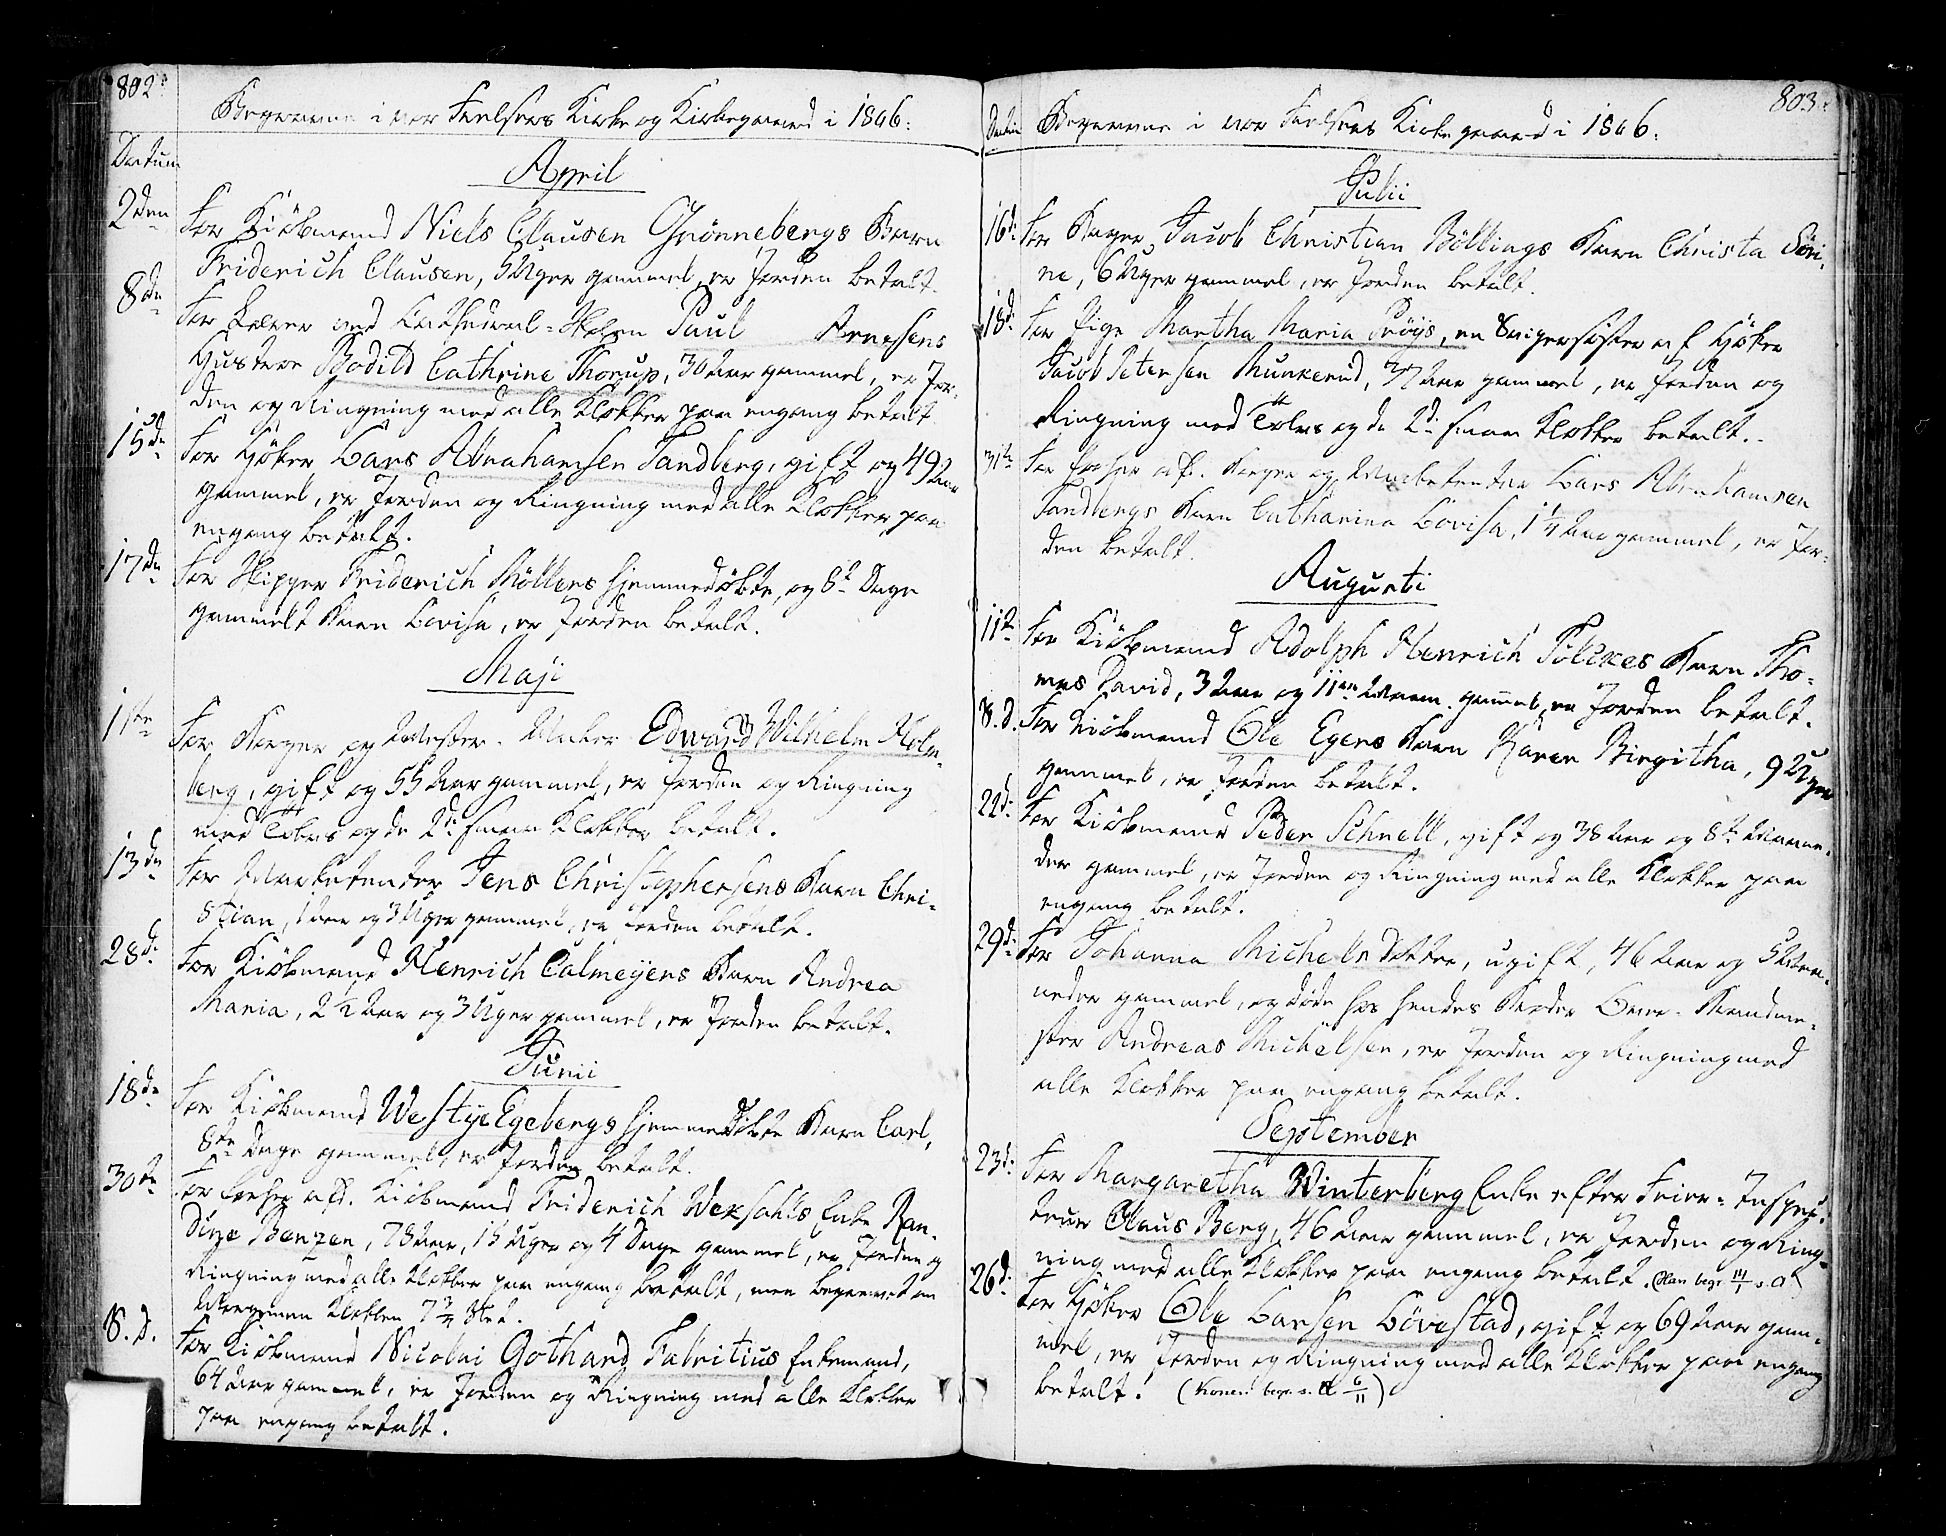 802.
Begravne i vor Frelsers Kirke og Kirkegaard i 1806.
Datum
April
2den For Kiöbmand Niels Clausen Grönnebergs Barn
Friderich Clausen, 5 Uger gammel, er Jorden betalt.
8de For Lærer ved Cathedral-Skolen Paul Arnesens
Hustrue Bodild Cathrine Thorup, 30 Aar gammel, er Jor-
den og Ringning med alle Klokker paa engang betalt
15de For Höker Lars Abrahamsen Sandberg, gift og 49 Aar
gammel, er Jorden og Ringning med alle Klokker paa
engang betalt.
17de For Skipper Friderich Möllers hjemmedöbte, og 8te Dage
gammelt Barn Lovisa, er Jorden betalt.
Maji
1ste For Borger og Mester Edward Wilhelm Holm-
berg, gift og 55 Aar gammel, er Jorden og Ringning
med Tolvs og de 2de smaa Klokker betalt.
13de For Marketender Jens Christophersens Barn Chri-
stian, 1 Aar og 3 Uger gammel, er Jorden betalt.
28de For Kiöbmand Henrich Calmeyers Barn Andrea
Maria, 2 1/2 Aar og 3 Uger gammel, er Jorden betalt.
Junii
18de For Kiöbmand Westye Egebergs hjemmedöbte Barn Carl,
8te Dage gammel, er Jorden betalt.
30te For forhen afd. Kiöbmand Friderich Wexsahls Enke Ran-
dine Benzen, 73 Aar, 15 Uger og 4 Dage gammel, er Jorden og
Ringning med alle Klokker paa engang betalt, men begravet om
Morgenen Klokken 7 3/4 Slet.
S.D. For Kiöbmand Nicolai Gothard Fabritius Enkemand,
64 Aar gammel, er Jorden og Ringning med alle Klokker
paa engang betalt.
803.
Datum Begravne i vor Frelsers Kirkegaard i 1806.
Julii
16de For Borger Jacob Christian Böllings Barn Christa Sövi-
ne, 6 Uger gammel, er Jorden betalt.
18de For Pige Martha Maria Pröys, en Svigersöster af Höker
Jacob Petersen Munkerud, 37 Aar gammel, er Jorden og
Ringning med Tolvs og de 2de smaa Klokker betalt.
31te For forhen afd. Borger og Marketenter Lars Abrahamsen
Sandbergs Barn Catharina Lovisa, 1 1/4 Aar gammel, er Jor-
den betalt.
Augusti
11te For Kiöbmand Adolph Henrich Pölckes Barn Tho-
mas David, 3 Aar og 11 Maan. gammel, er Jorden betalt.
S.D. For Kiöbmand Ole Egers Barn Karen Birgitha, 9 Uger
gammel, er Jorden betalt.
22de For Kiöbmand Peder Schnell, gift og 38 Aar og 8te Maane-
der gammel, er Jorden og Ringning med alle Klokker paa
engang betalt.
29de For Johanna Michelsdatter, ugift, 46 Aar og 5 Maa-
neder gammel, og döde hos hendes Broder Over-Brandme-
ster Andreas Michelsen, er Jorden og Ringning med
alle Klokker paa engang betalt.
September
23de For Margaretha Winterberg Enke efter Feier-Inspec-
teur Claus Berg, 46 Aar gammel, er Jorden og Ring-
ning med alle Klokker paa engang betalt. (Han begr. 14/1 s. A)
26de For Höker Ole Larsen Lövestad, gift og 69 Aar gam-
mel, er Jorden og Ringning med alle Klokker paa engang
betalt. (Konen begr. s. A 6/11)